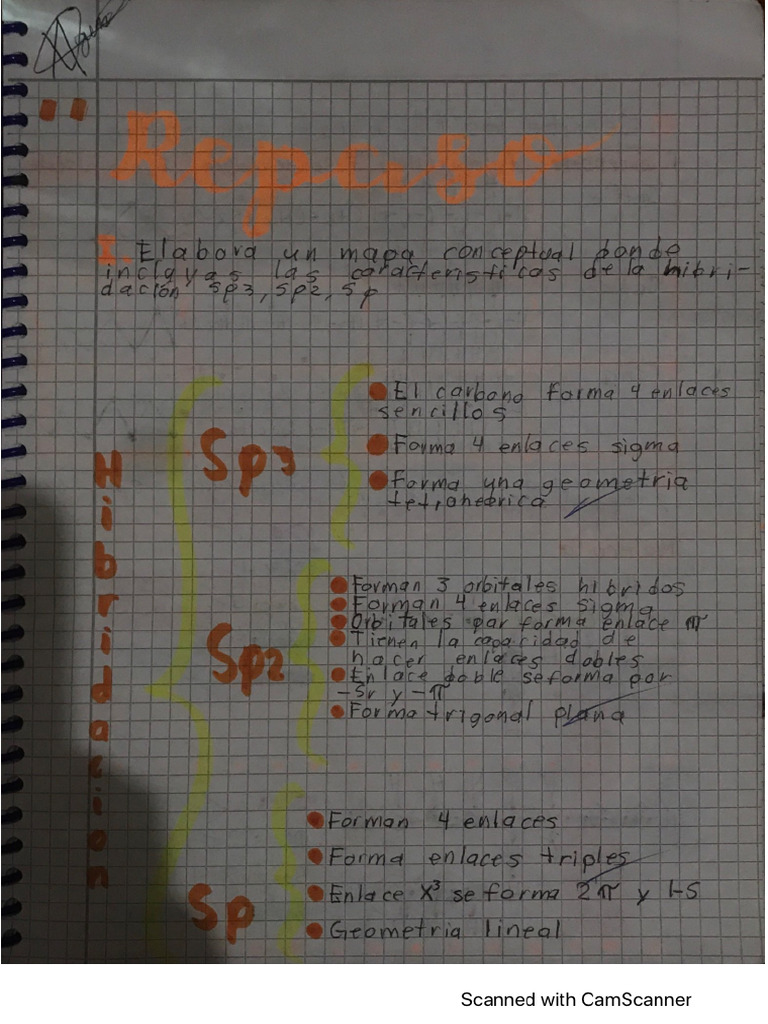 Repaso
I. Elabora un mapa conceptual donde
incluyas las características de la hibri-
dación sp3, sp2, sp
Hibridación
Sp3
El carbono forma 4 enlaces
sencillos
Forma 4 enlaces sigma
Forma una geometria
tetrahedrica
Sp2
Forman 3 orbitales hibridos
Forman 4 enlaces sigma
Orbitales par forma enlace π
Tienen la capacidad de
hacer enlaces dobles
Enlace doble se forma por
y -π
Forma trigonal plana
Sp
Forman 4 enlaces
Forma enlaces triples
Enlace X³ se forma 2π y 1-S
Geometria lineal
Scanned with CamScanner